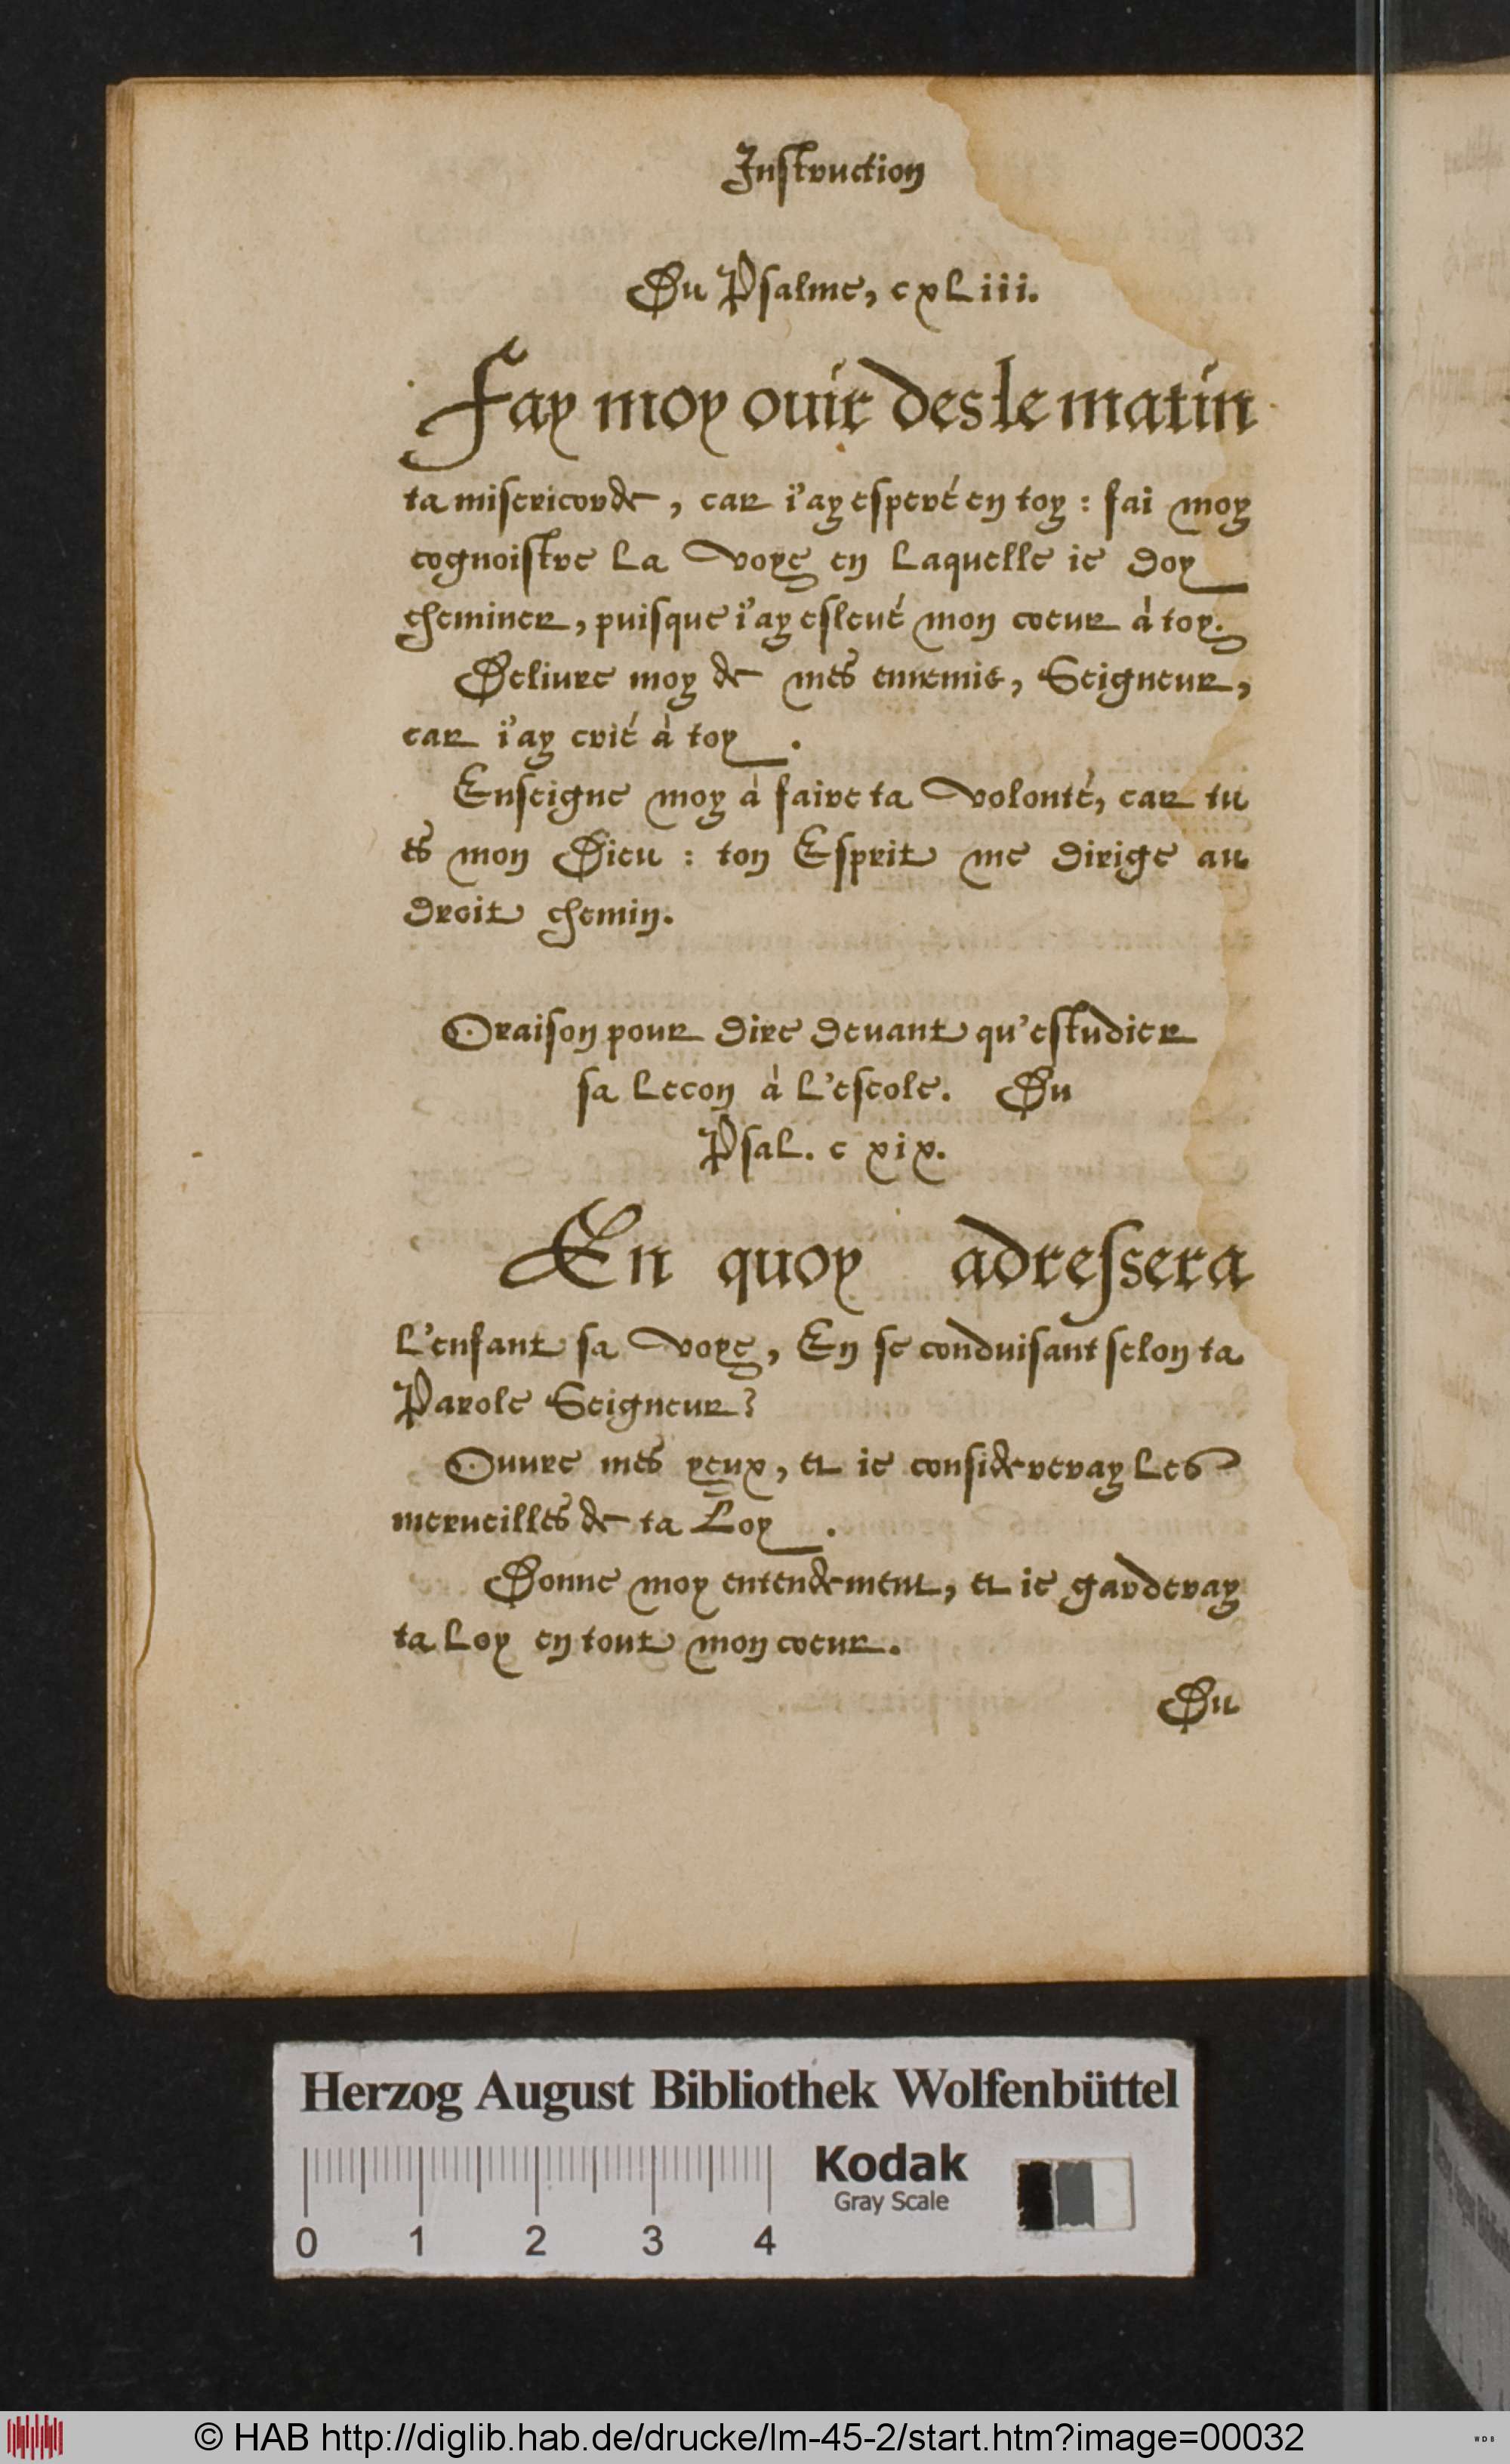 Instruction
Du Psalme, cxLiii.
Fay moy ouir des le matin
ta misericorde, car i'ay esperé en toy : fai moy
cognoistre la voye en laquelle ie doy
cheminer, puisque i'ay esleué mon coeur à toy.
Deliure moy de mes ennemis, Seigneur,
car i'ay crié à toy .
Enseigne moy à faire ta volonté, car tu
es mon Dieu : ton Esprit me dirige au
droit chemin.
Oraison pour dire deuant qu'estudier
sa lecon à l'escole. Du
Psal. c xix.
En quoy adressera
l'enfant sa voye, En se conduisant selon ta
Parole Seigneur?
Ouure mes yeux, et ie considereray les
merueilles de ta Loy .
Donne moy entendement, et ie garderay
ta loy en tout mon coeur.
Du
Herzog August Bibliothek Wolfenbüttel
Kodak
Gray Scale
0 1 2 3 4
© HAB http://diglib.hab.de/drucke/lm-45-2/start.htm?image=00032
WDB